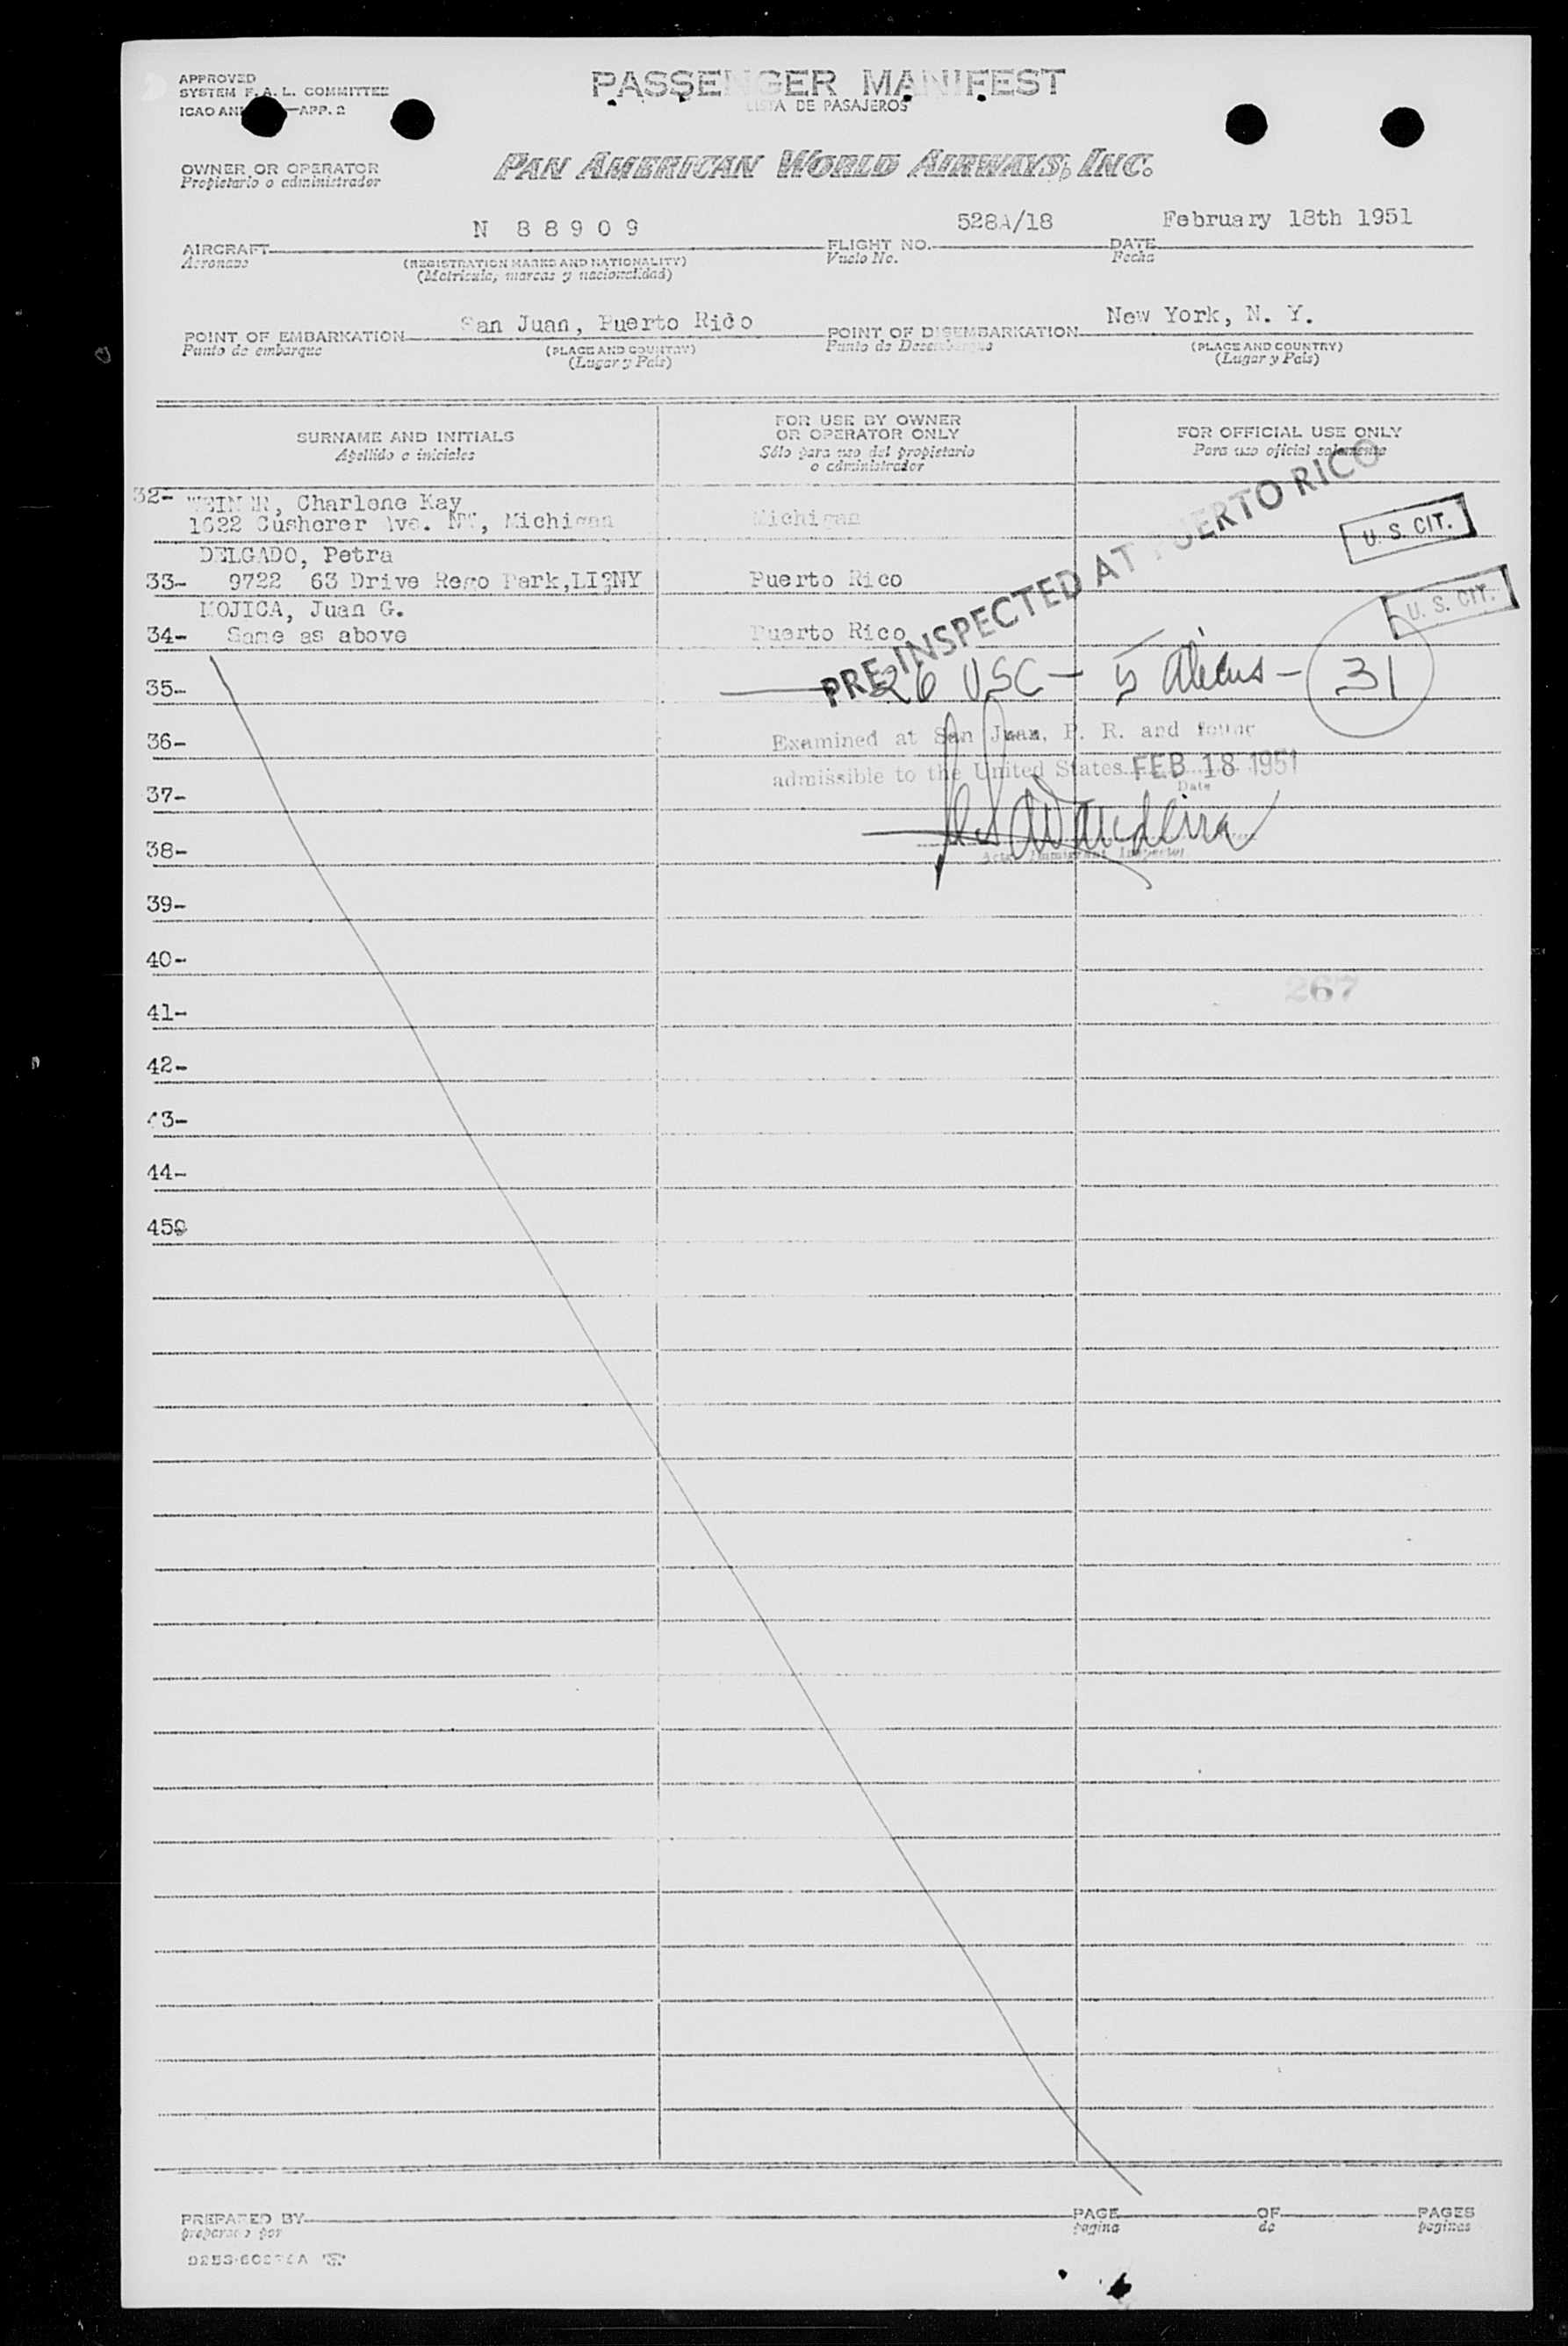 APPROVED
SYSTEM F. A. L. COMMITTEE
ICAO —APP. 2
PASSENGER MANIFEST
LISTA DE PASAJEROS
OWNER OR OPERATOR
Propietario o administrador
PAN AMERICAN WORLD AIRWAYS, INC.
AIRCRAFT N 88909 FLIGHT NO. 528A/18 DATE February 18th 1951
Aeronave (REGISTRATION MARKS AND NATIONALITY) Vuelo No. Fecha
(Matricula, marcas y nacionalidad)
POINT OF EMBARKATION San Juan, Puerto Rico POINT OF DISEMBARKATION New York, N. Y.
Punto de embarque (PLACE AND COUNTRY) Punto de Desembarque (PLACE AND COUNTRY)
(Lugar y País) (Lugar y País)
SURNAME AND INITIALS FOR USE BY OWNER OR OPERATOR ONLY FOR OFFICIAL USE ONLY
Apellido e iniciales Sólo para uso del propietario o administrador Para uso oficial solamente
32- WEINER, Charlene Kay
Ave. NW, Michigan Michigan U. S. CIT.
DELGADO, Petra
33- 9722 63 Drive Rego Park, Puerto Rico U. S. CIT.
MOJICA, Juan G.
34- Same as above Puerto Rico
PRE-INSPECTED AT PUERTO RICO
35- 26 USC - 5 Aliens - 31
36- Examined at San Juan, P. R. and found
37- admissible to the United States FEB 18 1951
Date
38- Immigrant Inspector
39-
40-
267
41-
42-
43-
44-
45
PREPARED BY PAGE OF PAGES
preparado por pagina de paginas